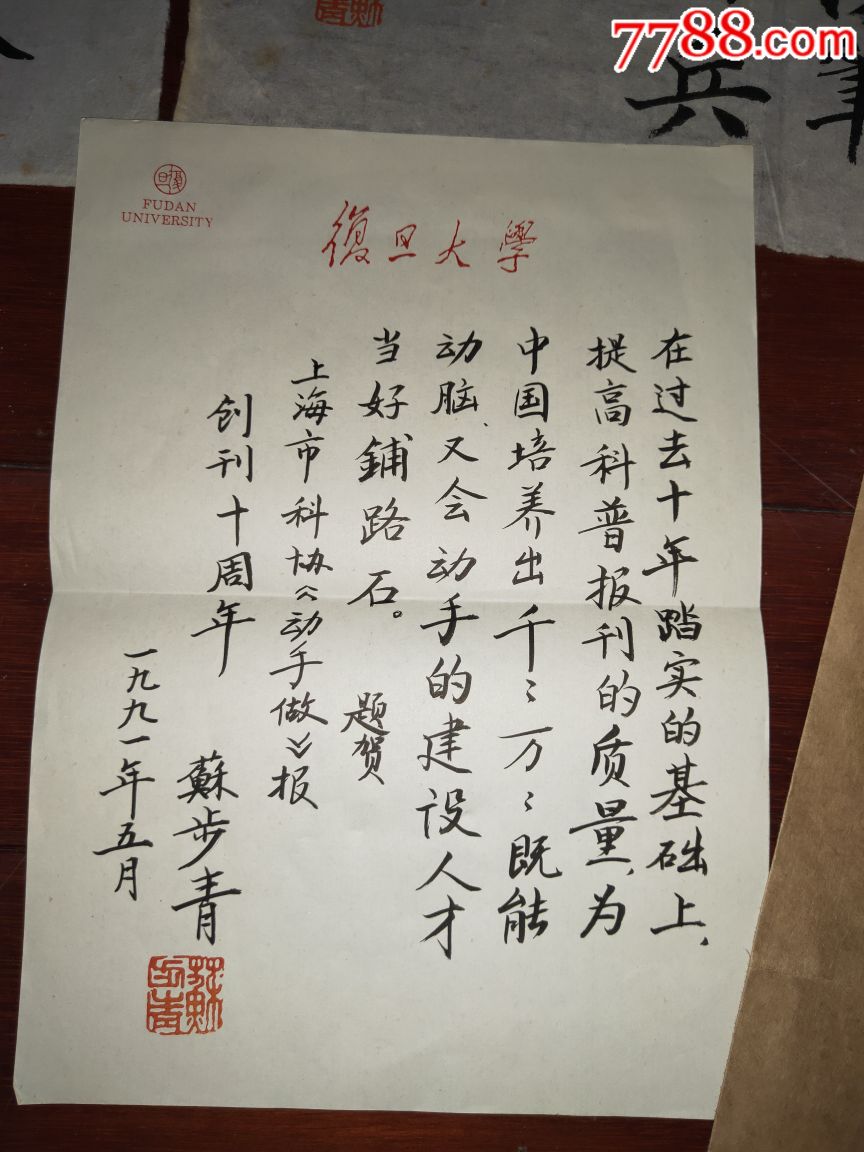 7788.com
兵
FUDAN
UNIVERSITY
復旦大學
在过去十年踏实的基础上、
提高科普报刊的质量、为
中国培养出千〻万〻既能
动脑、又会动手的建设人才
当好鋪路石。
题贺
上海市科协《动手做》报
创刊十周年
蘇步青
一九九一年五月